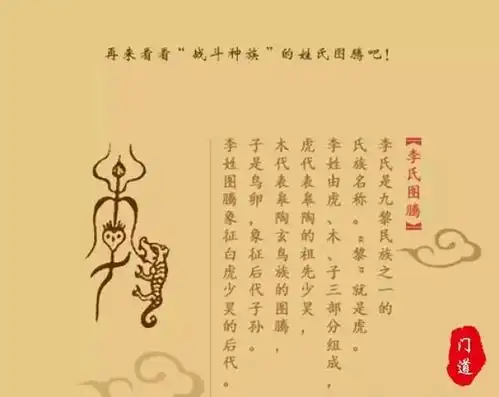 再来看看“战斗神族”的姓氏图腾吧！
【李氏图腾】
李氏是九黎民族之一的
氏族名称。“黎”就是虎。
李姓由虎、木、子三部分组成，
虎代表皋陶的祖先少昊，
木代表皋陶玄鸟族的图腾，
子是鸟卵，象征后代子孙。
李姓图腾象征白虎少昊的后代。
门道